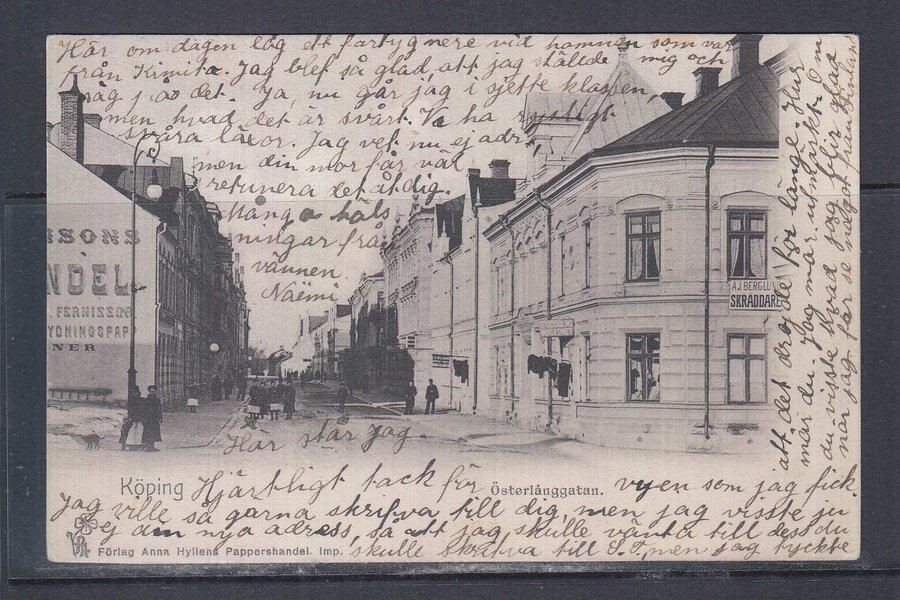 Här om dagen låg ett fartyg nere vid hamnen som var
från Kimita. Jag blef så glad, att jag ställde mig och
såg på det. Ja, nu går jag i sjette klassen,
men hvad det är svårt. Vi ha rysligt
svåra läxor. Jag vet nu ej adr.
men din mor får väl
retunera det åt dig.
Många häls
ningar från
vännen
Naëmi
NSONS
NDEL
FERNISSOR
YDNINGSPAP
NER
A.J. BERGLU
SKRÄDDARE
Här står jag
Köping
Österlånggatan.
Hjärtligt tack för vyen som jag fick.
Jag ville så gärna skrifva till dig, men jag visste ju
ej din nya adress, så att jag skulle vänta till dess du
skulle skrifva till T. T, men jag tyckte
att det dröjde för länge. Hur
mår du. Jag mår utmärkt. Om
du visste hvad jag blir glad
när jag får se något från Finland
Förlag Anna Hylléns Pappershandel. Imp.